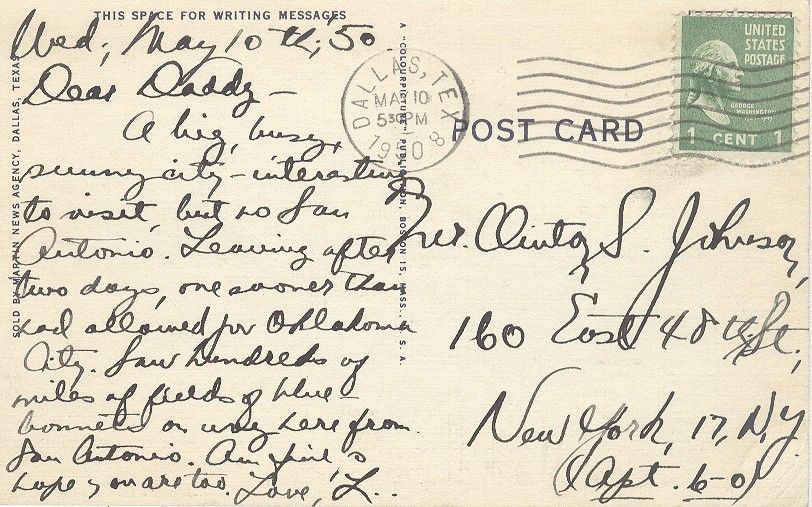 THIS SPACE FOR WRITING MESSAGES
Wed, May 10th, '50
Dear Daddy –
A big, busy,
sunny city – interesting
to visit, but no San
Antonio. Leaving after
two days, one sooner than
had allowed for Oklahoma
City. Saw hundreds of
miles of fields of blue-
bonnets on way here from
San Antonio. Am fine &
hope you are too. Love, L..
SOLD BY MARTIN NEWS AGENCY, DALLAS, TEXAS
A "COLOURPICTURE" PUBLICATION, BOSTON 15, MASS., U. S. A.
DALLAS, TEX.
MAY 10
530PM
1950
8
POST CARD
UNITED
STATES
POSTAGE
GEORGE
WASHINGTON
1 CENT 1
Mr. Clinton S. Johnson,
160 East 48th St.,
New York, 17, N.Y.
(Apt. 6-O)